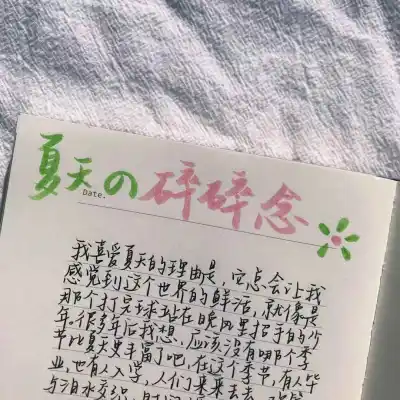 夏天の碎碎念
Date.
我喜爱夏天的理由是，它总会让我
感觉到这个世界的鲜活，就像是
那个打完球站在晚风里招手的少
年，很多年后我想，应该没有哪个季
节比夏天更丰富了吧，在这个季节，有人毕
业，也有人入学，人们来来去去
与泪水交织